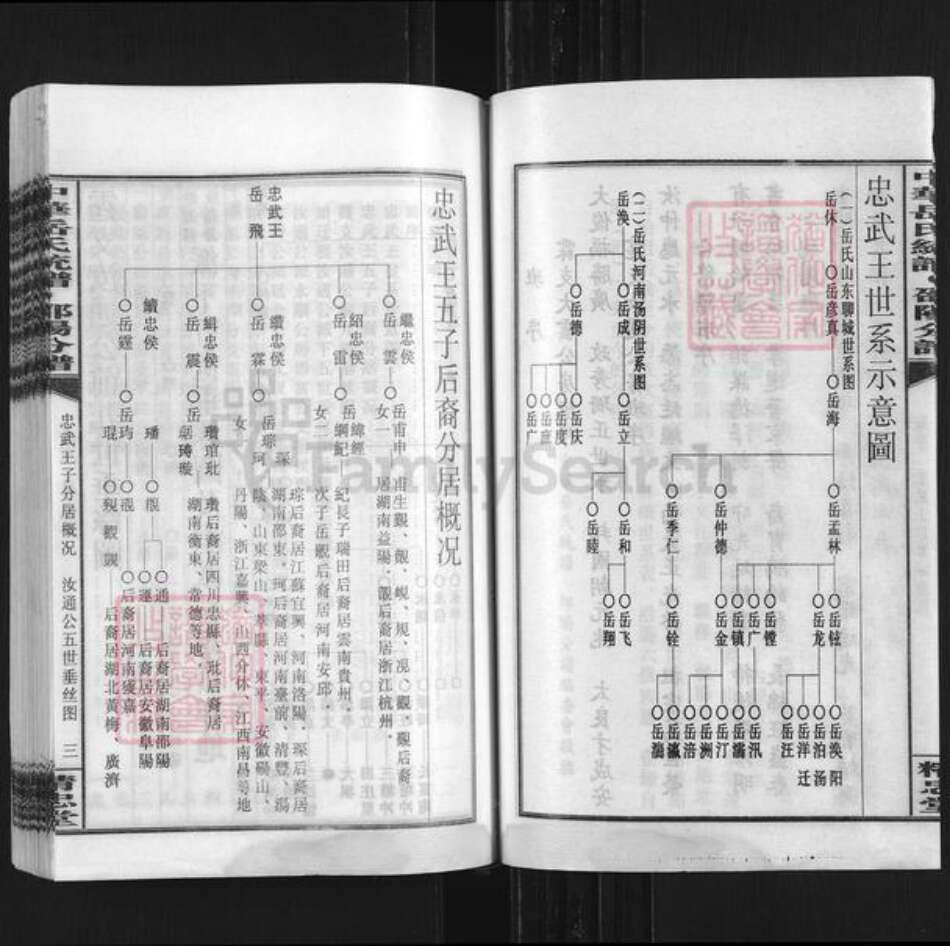 忠武王世系示意圖
(一)岳氏山东聊城世系图
岳休
岳彦真
岳海
岳孟林
岳仲德
岳季仁
岳铉
岳龙
岳镗
岳广
岳镇
岳金
岳铨
岳涣 迁汤阳
岳泊
岳洋
岳汪
岳汛
岳汀
岳洲
岳涪
岳瀛
(二)岳氏河南汤阴世系图
岳涣
岳成
岳德
岳立
岳庆
岳度
岳广
岳和
岳睦
岳飞
岳翔
忠武王五子后裔分居概况
忠武王
岳飛
繼忠侯
岳雲
紹忠侯
岳雷
纘忠侯
岳霖
緝忠侯
岳震
續忠侯
岳霆
岳甫申
女一
甫生覲、
后裔居浙江杭州。
居湖南益陽、
岳 經緯綱紀
女二
紀長子瑞田后裔居雲南貴州。
次子岳觀后裔居河南安邱。
岳琮琛珂
女一
琮后裔居江蘇宜興、河南洛陽。琛后裔居
湖南邵東。珂后裔居河南臺前、清豐、湯
陰、山東梁山、莘縣、東平、安徽碭山、
丹陽、浙江嘉興、山西分休、江西南昌等地
瓚后裔居四川忠縣、玭后裔居
湖南衡東、常德等地。
后裔居湖南邵陽
后裔居安徽阜陽
后裔居河南獲嘉
后裔居湖北黄梅、廣濟
忠武王子分居概况 汝通公五世垂丝图 三
中華岳氏統譜 邵陽分譜
精忠堂
FamilySearch